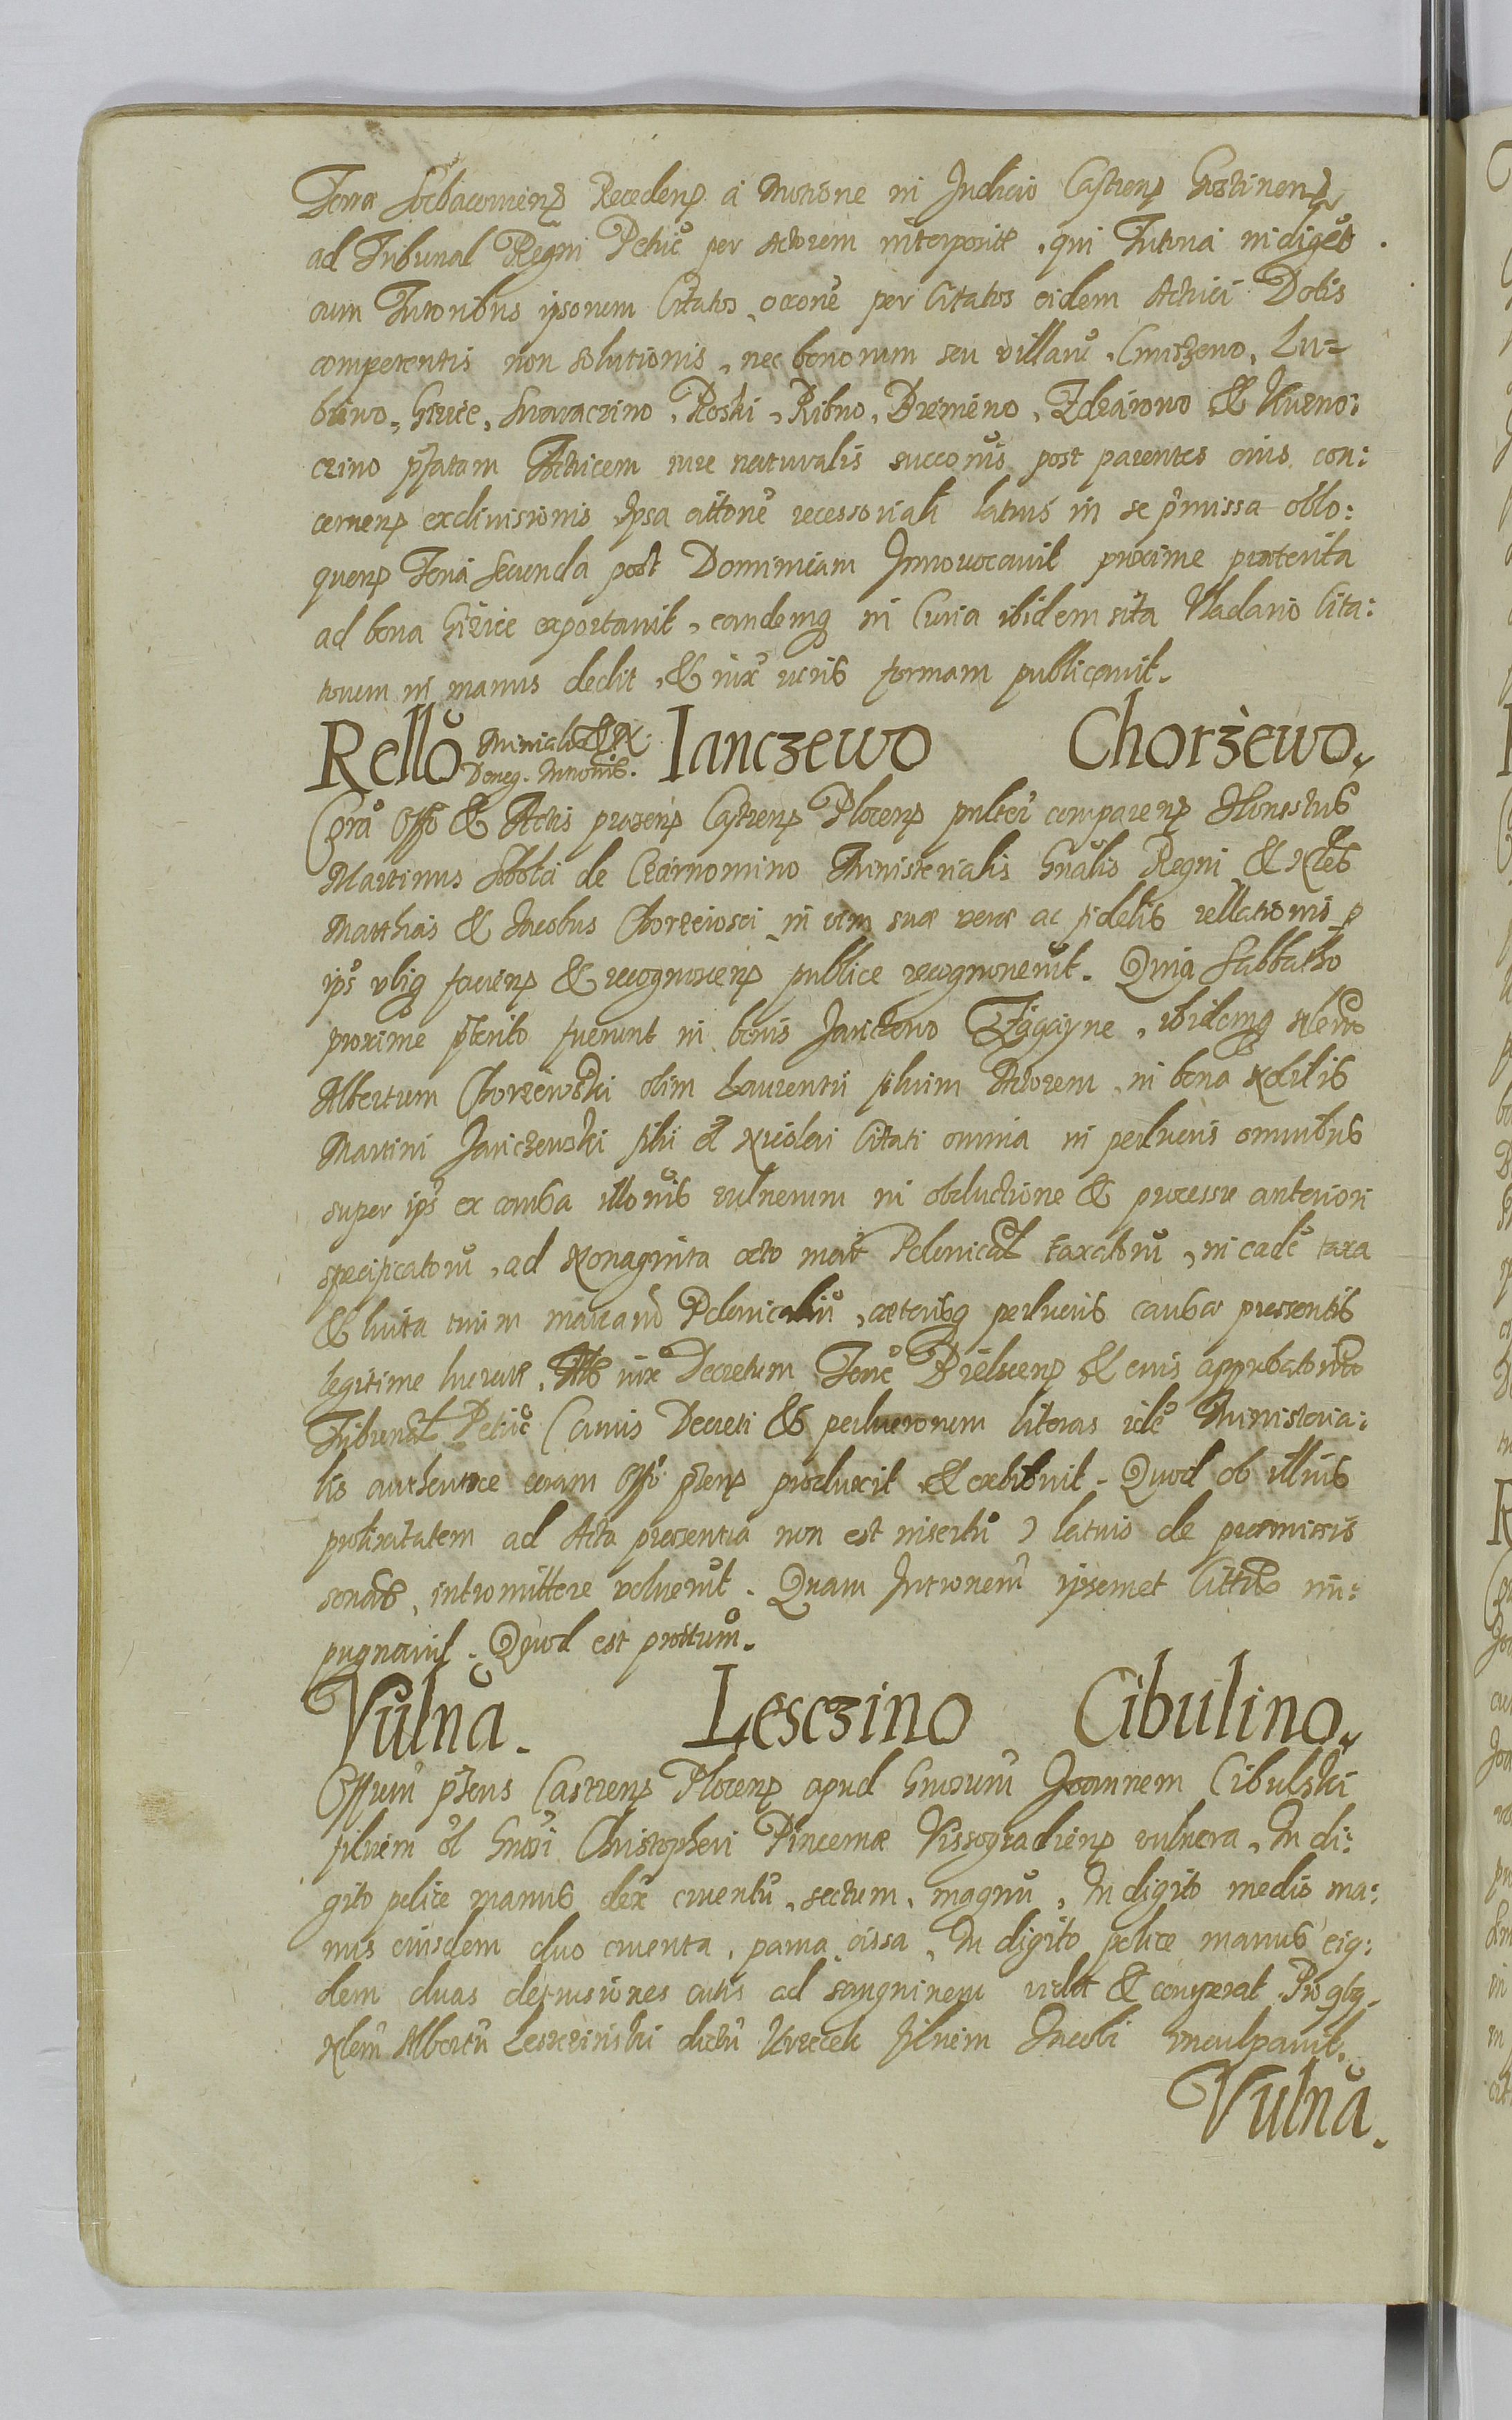 Terra Sochacoviens Recedens a motione in Judicio Castrens Gostinens
ad Tribunal Regni Petric per Actorem interposit, qui Tutina indiget
cum Tutoribus ipsorum Citatos, occone per Citatos eidem Actrici Dotis
competentis non solutionis, nec bonorum seu villaru, Cmiszeno, Lu=
bino, Girice, Suavaczino, Roski, Ribno, Bremino, Zdzarowo & Kurno:
czino pfatam Actricem iure naturalis successonis post parentes eius con:
cernens exdivisionis ipsa cittone recessoriali latius in se pmissa oblo:
quens Feria Secunda post Dominicam Invocavit proxime praeterita
ad bona Girice exportavit, eandemq in Curia ibidem sita Vladario Cita:
torum in manus dedit, & iux iuris formam publicavit.
Rello Minialis & N. Deneg. Intronis. Ianczewo Chorzewo.
Cora Offo & Actis praesens Castrens Plocens psulter comparens Honestus
Martinus Sobota de Czarnomino Ministerialis Gnalis Regni & Nles
Matthias & Jacobus Chorzewsci in vim suae verae ac fidelis rellationis p
ips ubiq faciens & recognoscens publice recognoverut. Quia Sabbatho
proxime pterito fuerunt in bonis Janczewo Zagayne, ibidemq Nlem
Albertum Chorzewski olim Laurentii filium Actorem, in bona Nobilis
Martini Janczewski filii ol Nicolai Citati omnia in perlucris omnibus
super ips ex causa illoris vulnerum in obductione & processu anteriori
specificatoru, ad Nonaginta octo marc Polonical taxatoru, in eade taxa
& luita trium marcaru Polonicaliu, caeterisq perlucris causae praesentis
legitime lucratis, iux Decretum Terre Bielscens & eius approbatorio
Tribunal Petric (Cuius Decreti & perlucrorum literas ide Ministeria:
lis authentice coram Offo ptens produxit & exhibuit. Quod ob illius
prolixitatem ad Acta praesentia non est insertu) latius de praemissis
sonans, intromittere voluerut. Quam Intronem ipsemet Cittus im:
pugnavit. Quod est prottum.
Vulna. Lesczino Cibulino.
Offium ptens Castrens Plocens apud Gnosum Joannem Cibulski
filium ol Gnosi Christopheri Pincernae Vissogradiens vulnera, In di:
gito police manus dex cruentu, sectum, magnu, In digito medio ma:
nus eiusdem duo cruenta, parva, cissa, In digito police manus eiq:
dem duas detrusiones cutis ad sanguinem vidit & conspexit. Pro qbq
Nlem Albertu Lesczinski dictu Kurecek filium Jacobi inculpavit.
Vulna.